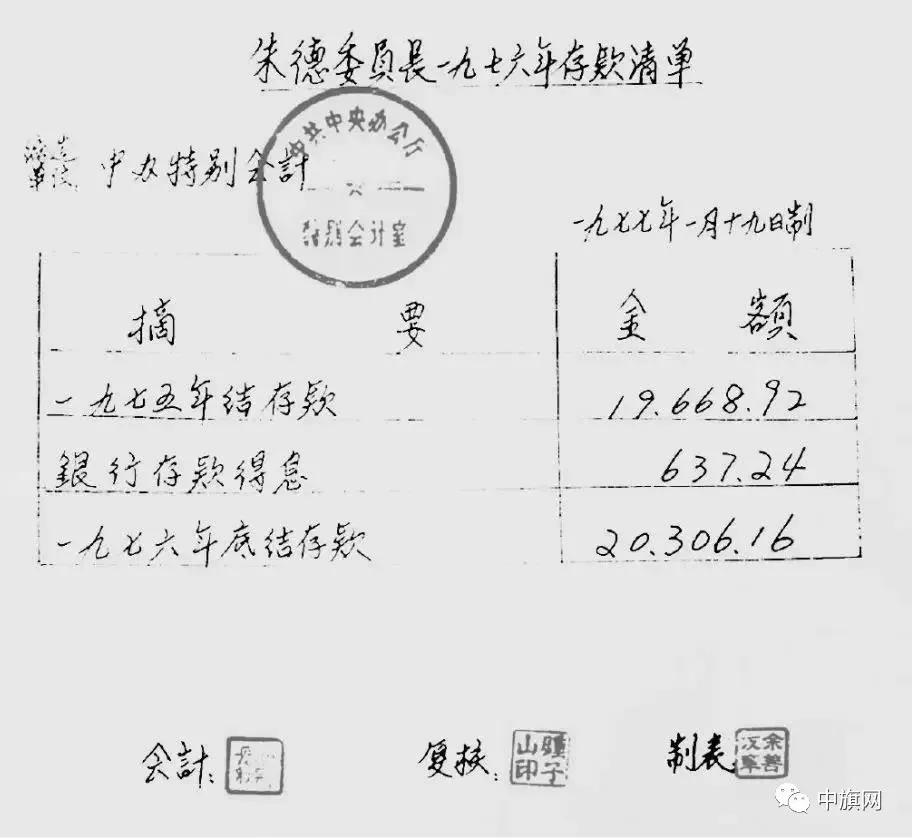 朱德委員長一九七六年存款清单
中共中央办公厅
特别会计室
中办特别会計
一九七七年一月十九日制
摘 要 金 額
一九七五年结存款 19.668.92
銀行存款得息 637.24
一九七六年底结存款 20.306.16
会計:
复核: 鍾子山印
制表 余善
中旗网